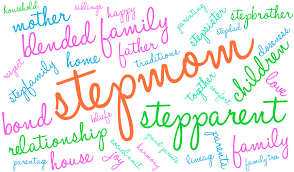 household
siblings
happy
parenting
stepbrother
mother
stepsister
blended family
father
stepdad
closeness
respect
home
traditions
stepfamily
stepmom
together
comfort
children
love
bond
stepparent
stepparents
relationship
grandparents
social unit
harmony
family
parenting
house
joy
lineage
family tree